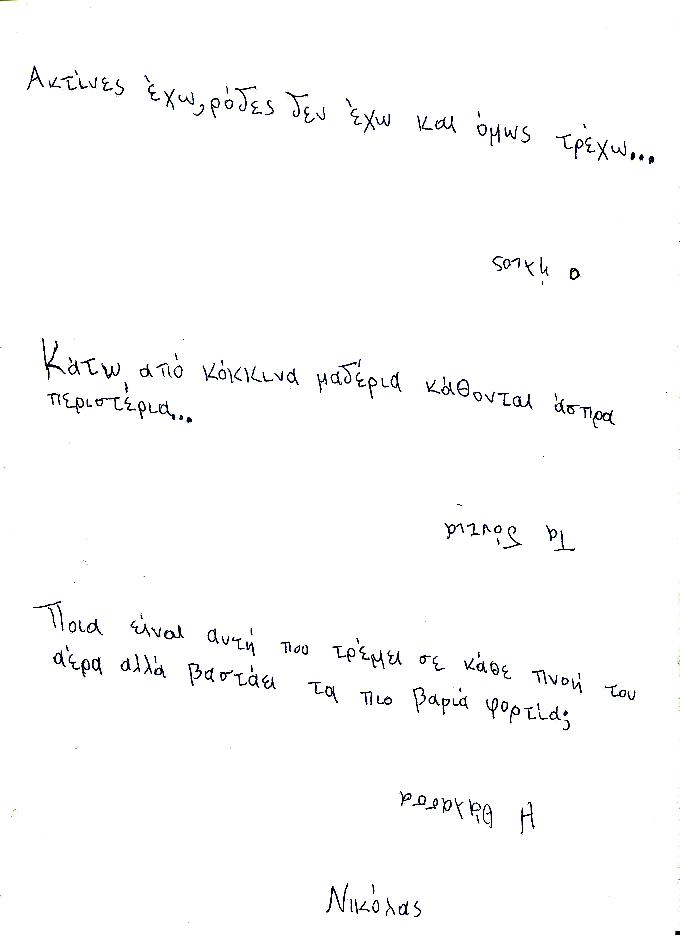 Ακτίνες έχω, ρόδες δεν έχω και όμως τρέχω...
ο ήλιος
Κάτω από κόκκινα μαδέρια κάθονται άσπρα
περιστέρια...
Τα δόντια
Ποια είναι αυτή που τρέμει σε κάθε πνοή του
αέρα αλλά βαστάει τα πιο βαριά φορτία;
Η θάλασσα
Νικόλας